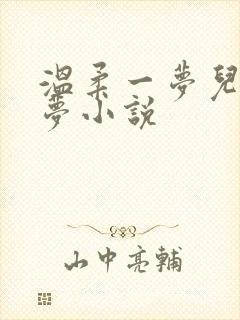 溫柔一夢兒
夢小說
山中亮輔